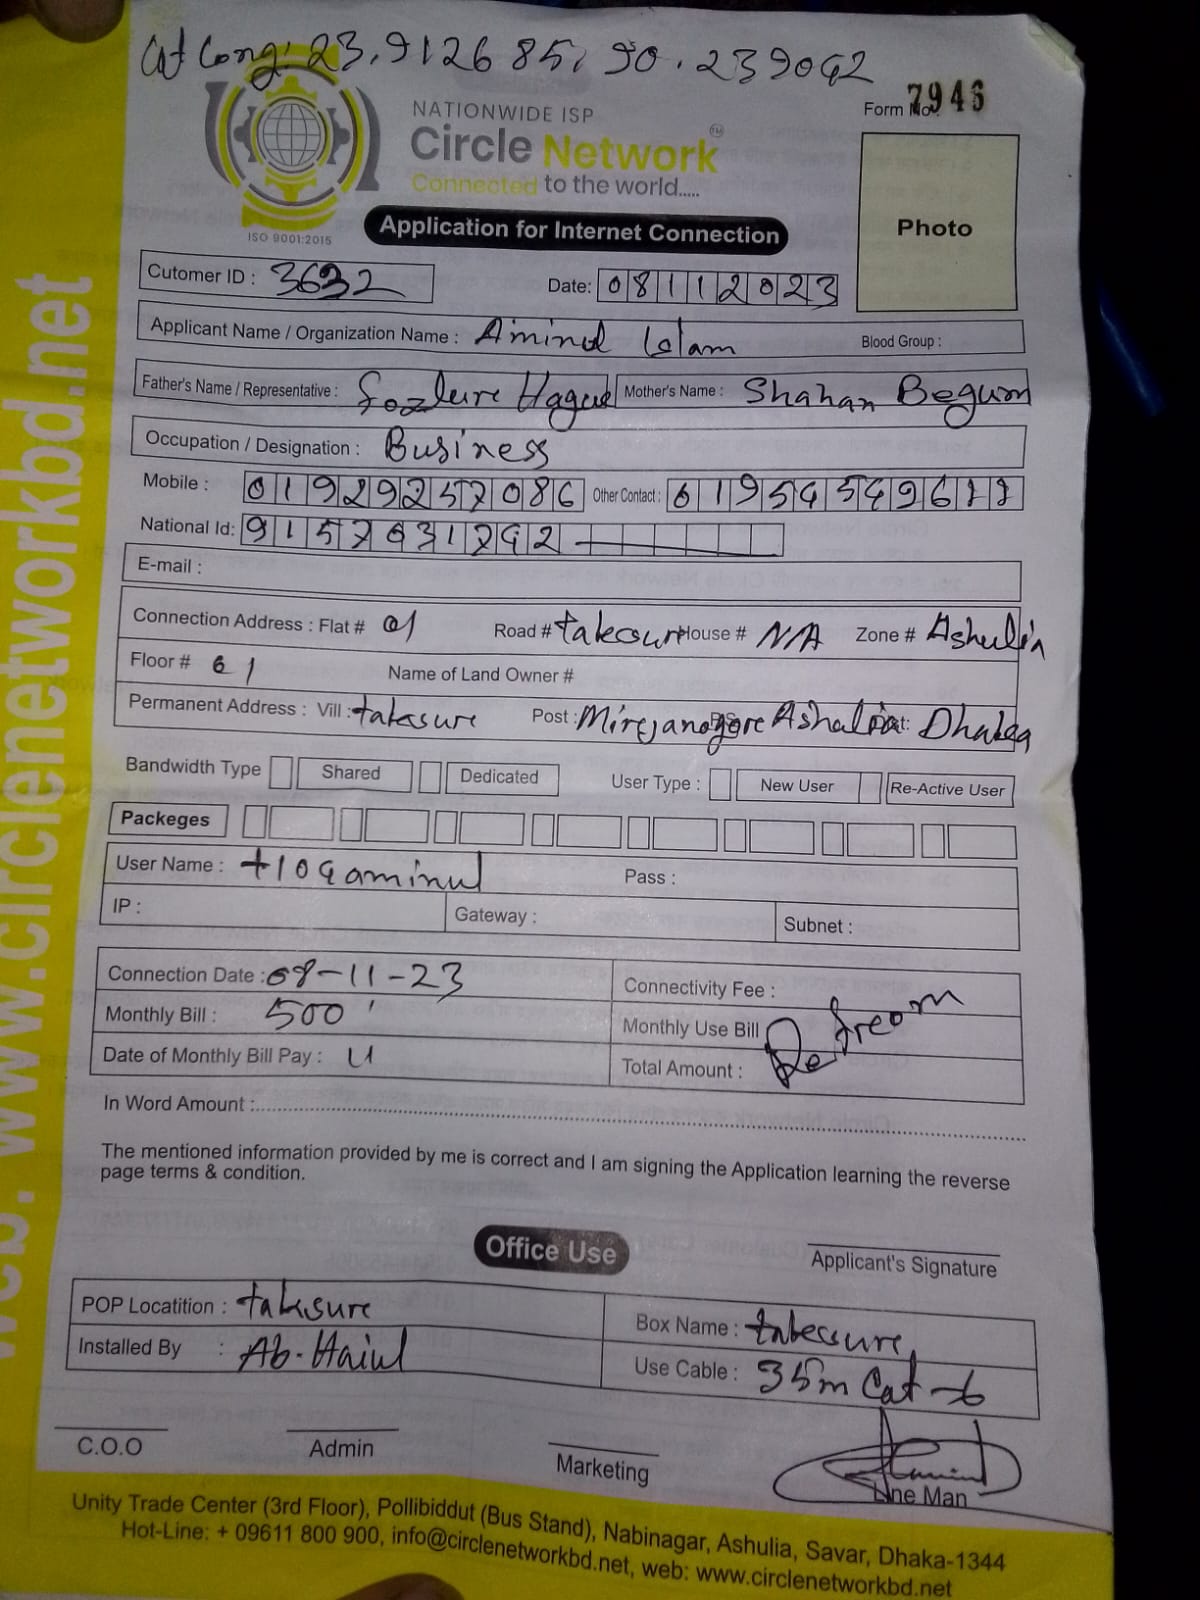 Cat Long: 23.912685, 90.239042
NATIONWIDE ISP
Form No. 7946
Circle Network™
Connected to the world.....
ISO 9001:2015
Application for Internet Connection
Photo
Cutomer ID : 3632
Date: 08112023
Applicant Name / Organization Name : Aminul Islam Blood Group :
Father's Name / Representative : Hague Mother's Name : Shahan Begum
Occupation / Designation : Business
Mobile : 01929257086 Other Contact :
National Id: 9157631742
E-mail :
Connection Address : Flat # 01 Road # takesure House # N/A Zone # Ashulia
Floor # 01 Name of Land Owner #
Permanent Address : Vill : takesure Post : Ashulia Dist: Dhaka
Bandwidth Type Shared Dedicated User Type : New User Re-Active User
Packeges
User Name : t104aminul Pass :
IP : Gateway : Subnet :
Connection Date : 08-11-23 Connectivity Fee :
Monthly Bill : 500 Monthly Use Bill
Date of Monthly Bill Pay : Total Amount :
In Word Amount :
The mentioned information provided by me is correct and I am signing the Application learning the reverse
page terms & condition.
Office Use
Applicant's Signature
POP Locatition : takesure Box Name : takesure
Installed By : Use Cable : 35m Cat-6
C.O.O Admin Marketing Line Man
Unity Trade Center (3rd Floor), Pollibiddut (Bus Stand), Nabinagar, Ashulia, Savar, Dhaka-1344
Hot-Line: + 09611 800 900, info@circlenetworkbd.net, web: www.circlenetworkbd.net
web: www.circlenetworkbd.net